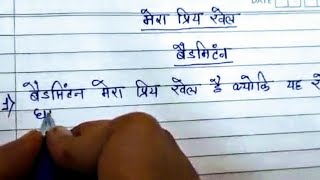 मेरा प्रिय खेल
बैडमिंटन
1) बैडमिंटन मेरा प्रिय खेल है क्योकि यह